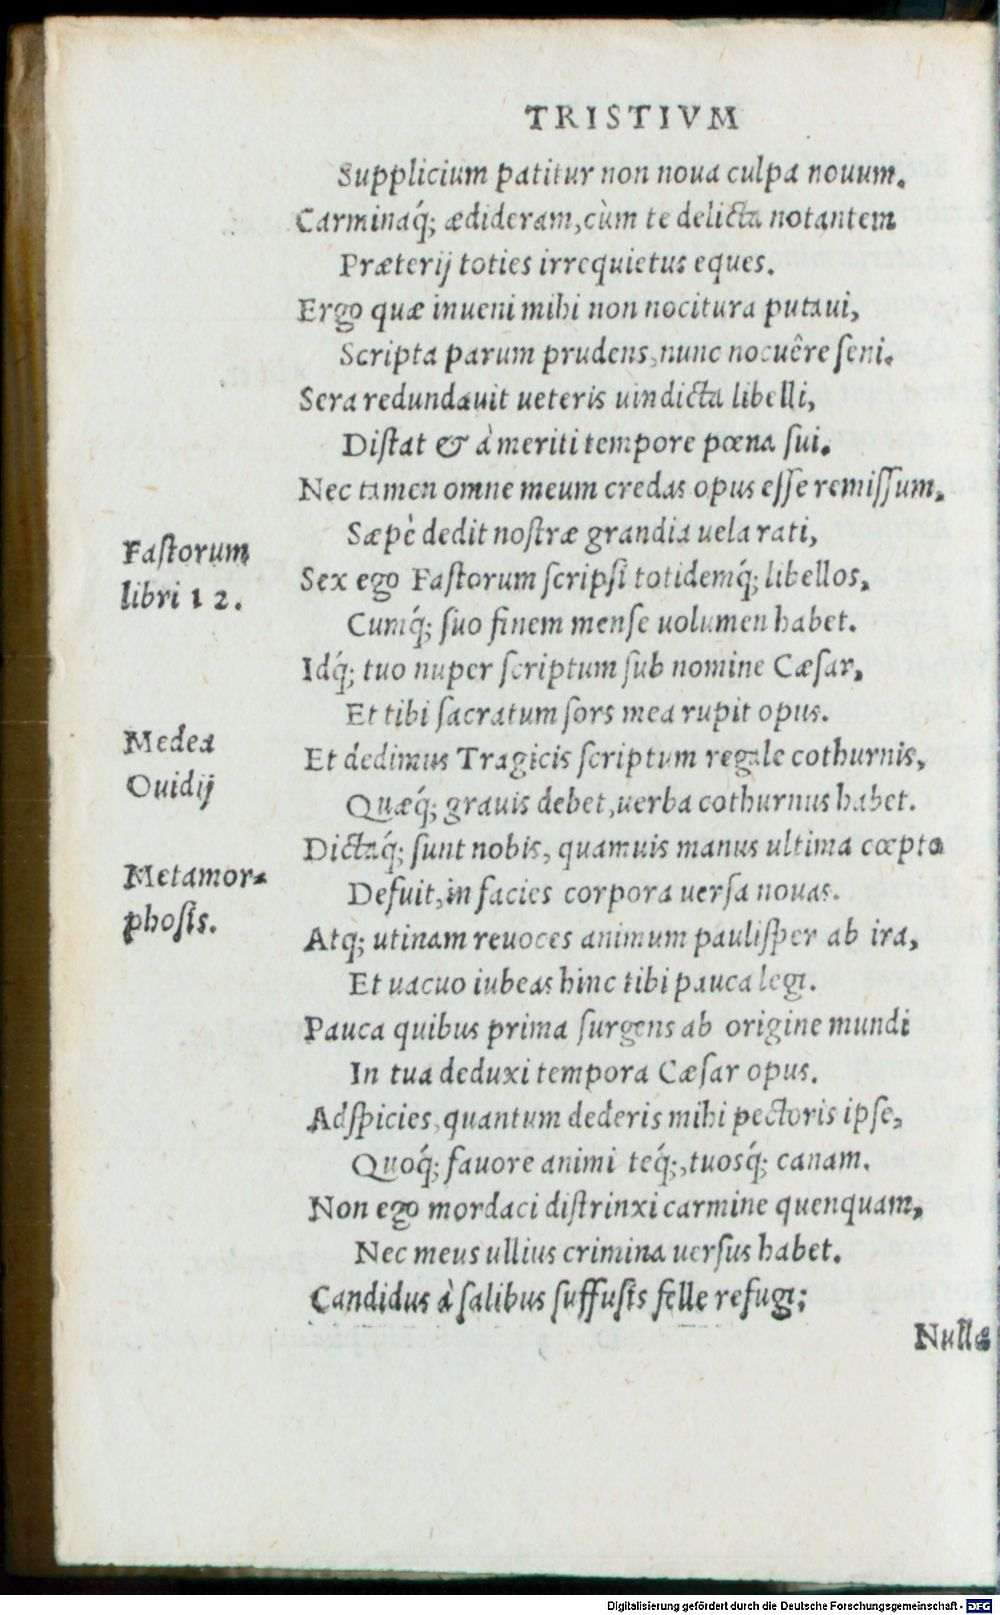 TRISTIVM
Supplicium patitur non noua culpa nouum.
Carminaq́; ædideram, cùm te delicta notantem
Præterij toties irrequietus eques.
Ergo quæ inueni mihi non nocitura putaui,
Scripta parum prudens, nunc nocuêre ſeni.
Sera redundauit ueteris uindicta libelli,
Diſtat & à meriti tempore pœna ſui.
Nec tamen omne meum credas opus eſſe remiſſum,
Sæpè dedit noſtræ grandia uela rati,
Fastorum
libri 12.
Sex ego Faſtorum ſcripſi totidemq́; libellos,
Cumq́; ſuo finem menſe uolumen habet.
Idq́; tuo nuper ſcriptum ſub nomine Cæſar,
Et tibi ſacratum ſors mea rupit opus.
Medea
Ouidij
Et dedimus Tragicis ſcriptum regale cothurnis,
Quæq́; grauis debet, uerba cothurnus habet.
Dictaq́; ſunt nobis, quamuis manus ultima cœpto
Metamor-
phoſis.
Defuit, in facies corpora uerſa nouas.
Atq; utinam reuoces animum pauliſper ab ira,
Et uacuo iubeas hinc tibi pauca legi.
Pauca quibus prima ſurgens ab origine mundi
In tua deduxi tempora Cæſar opus.
Adſpicies, quantum dederis mihi pectoris ipſe,
Quoq́; fauore animi teq́;, tuosq́; canam.
Non ego mordaci diſtrinxi carmine quenquam,
Nec meus ullius crimina uerſus habet.
Candidus à ſalibus ſuffuſis felle refugi;
Nulla
Digitalisierung gefördert durch die Deutsche Forschungsgemeinschaft - DFG